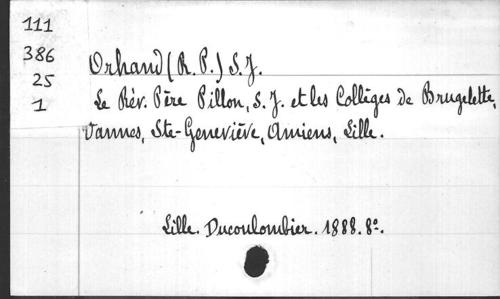 111
386
25
1
Orhand (R. P.) S. J.
Le Rév. Père Pillon, S. J. et les Collèges de Brugelette,
Vannes, Ste-Geneviève, Amiens, Lille.
Lille. Ducoulombier. 1888. 8º.